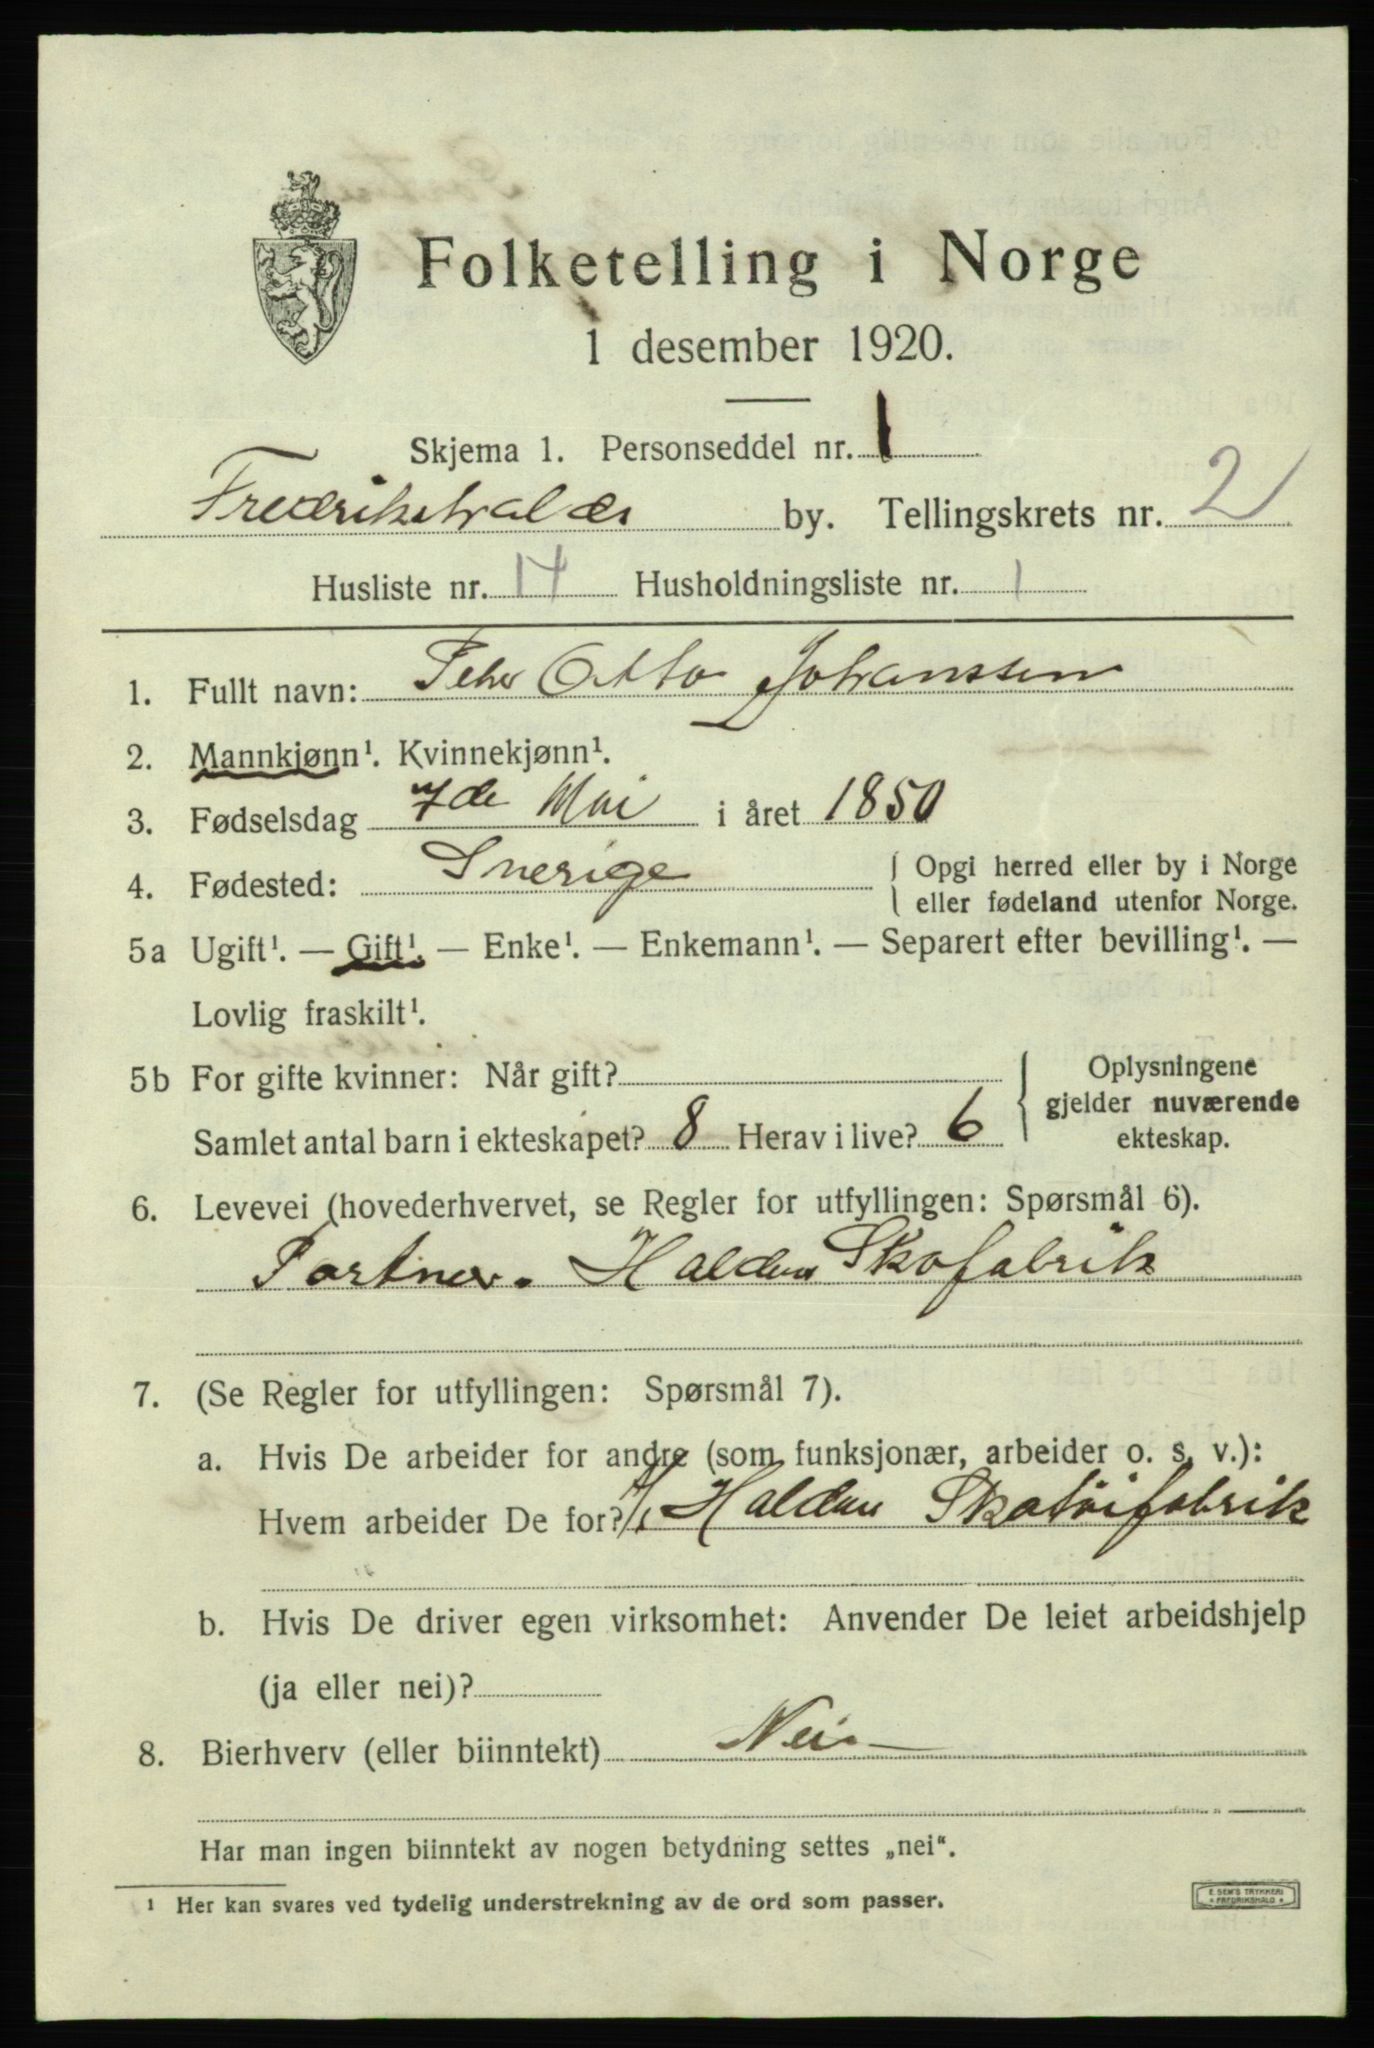 Folketelling i Norge
1 desember 1920.
Skjema 1. Personseddel nr. 1
Fredrikshalds by. Tellingskrets nr. 2
Husliste nr. 14 Husholdningsliste nr. 1
1. Fullt navn: Peter Otto Johanssen
2. Mannkjønn¹. Kvinnekjønn¹.
3. Fødselsdag 7de Mai i året 1850
4. Fødested: Sverige { Opgi herred eller by i Norge
eller fødeland utenfor Norge.
5a Ugift¹. — Gift¹. — Enke¹. — Enkemann¹. — Separert efter bevilling¹. —
Lovlig fraskilt¹.
5b For gifte kvinner: Når gift?
Samlet antal barn i ekteskapet? 8 Herav i live? 6
{ Oplysningene
gjelder nuværende
ekteskap.
6. Levevei (hovederhvervet, se Regler for utfyllingen: Spørsmål 6).
Portner. Halden Skofabrik
7. (Se Regler for utfyllingen: Spørsmål 7).
a. Hvis De arbeider for andre (som funksjonær, arbeider o. s. v.):
Hvem arbeider De for? Halden Skotøifabrik
b. Hvis De driver egen virksomhet: Anvender De leiet arbeidshjelp
(ja eller nei)?
8. Bierhverv (eller biinntekt) Nei
Har man ingen biinntekt av nogen betydning settes „nei“.
¹ Her kan svares ved tydelig understrekning av de ord som passer.
E. SEM'S TRYKKERI
FREDRIKSHALD